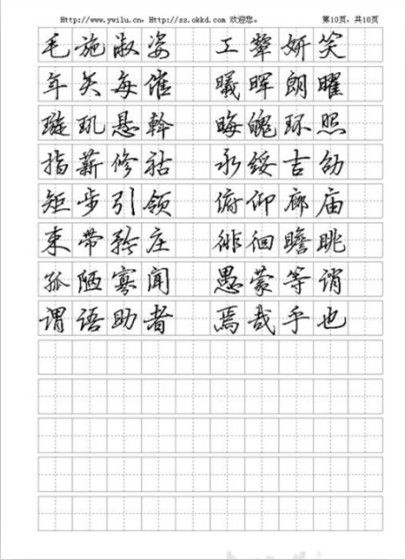 Http://www.ywilu.cn, Http://sz.okkd.com 欢迎您。 第10页, 共10页
毛施淑姿 工颦妍笑
年矢每催 曦晖朗曜
璇玑悬斡 晦魄环照
指薪修祜 永绥吉劭
矩步引领 俯仰廊庙
束带矜庄 徘徊瞻眺
孤陋寡闻 愚蒙等诮
谓语助者 焉哉乎也